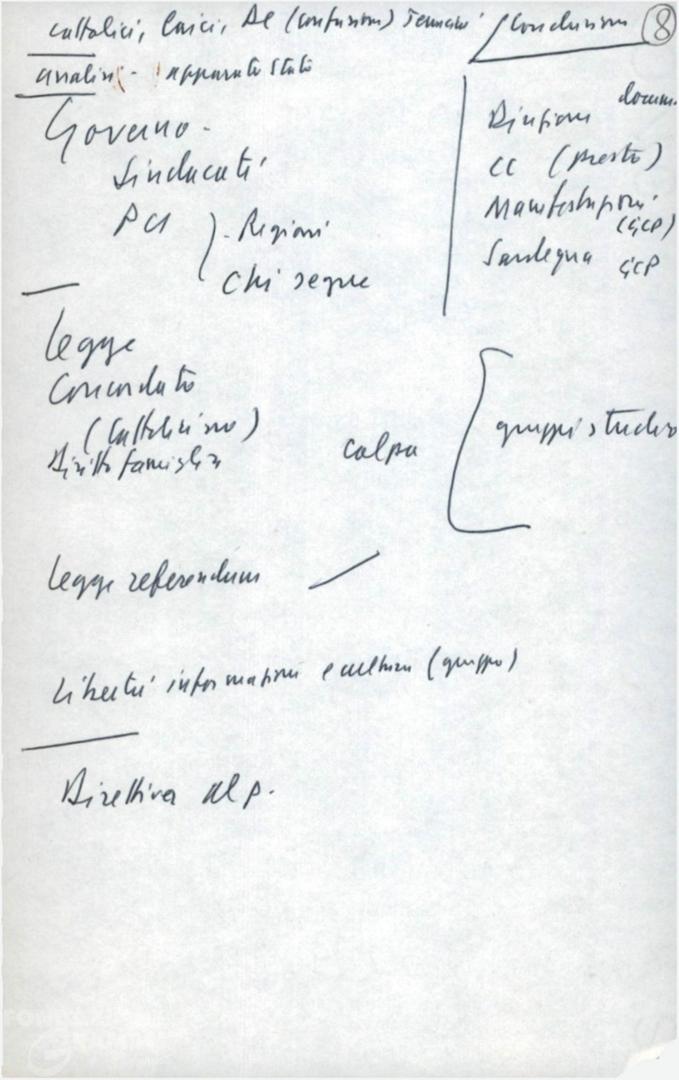 cattolici, laici, DC (confusioni)
Conclusioni
8
analisi - apparato stato
Governo -
Sindacati
PCI
- Regioni
Chi segue
docum.
Riunioni
CC (presto)
Manifestazioni
(GCP)
Sardegna GCP
Legge
Concordato
(Cattolicismo)
Diritto famiglia
colpa
gruppi studio
Legge referendum
Libertà informazioni e cultura (gruppo)
Direttiva al p.